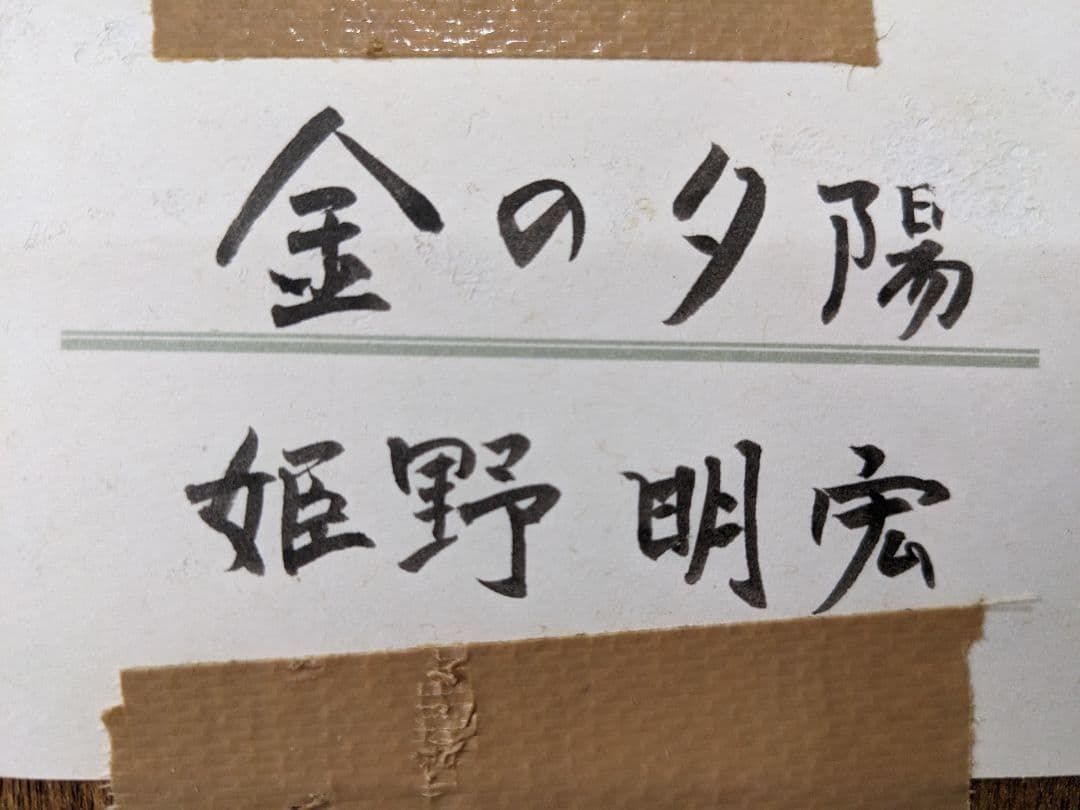 金の夕陽
姫野明宏